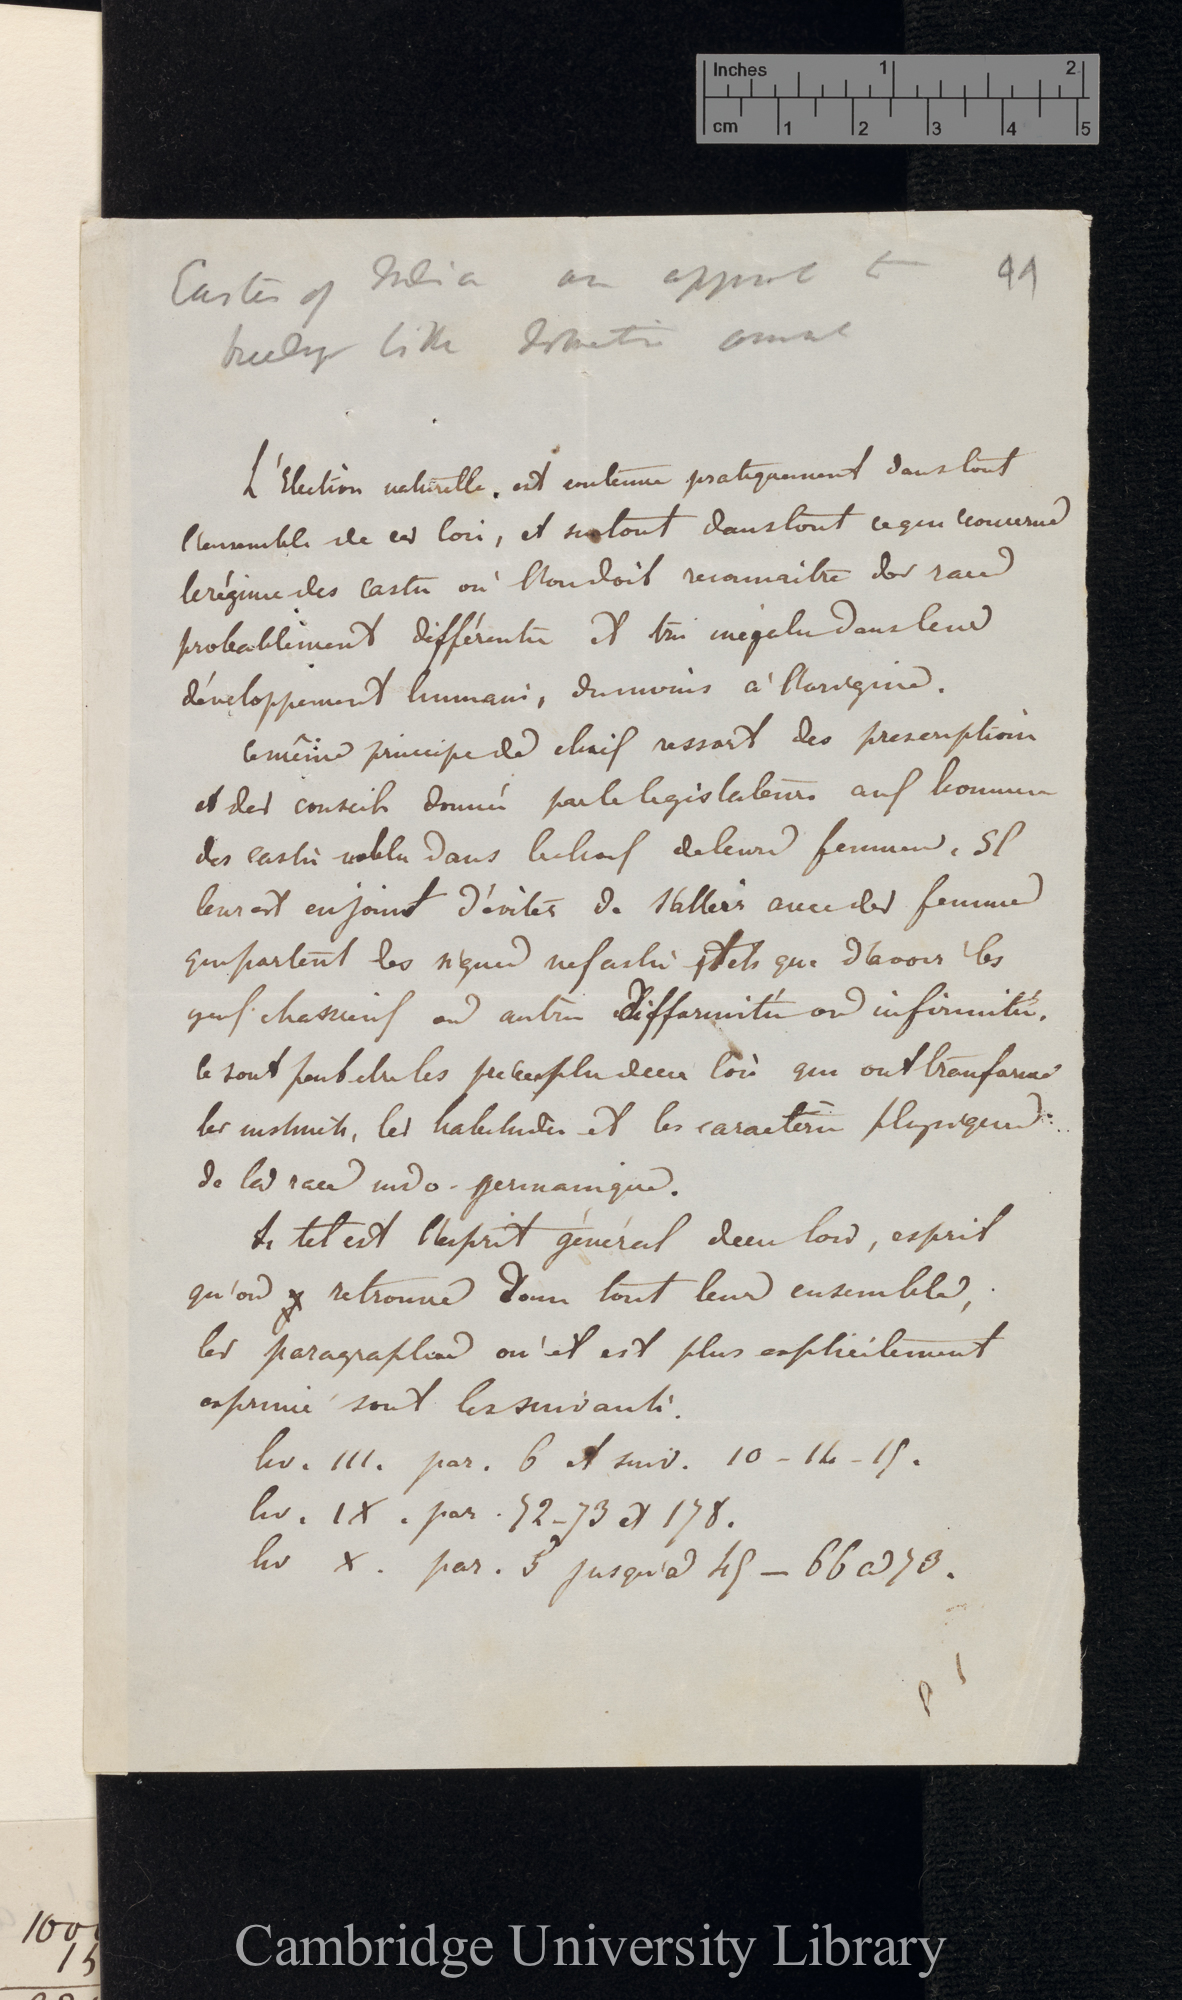 Inches 1 2
cm 1 2 3 4 5
Castes of India an appeal to 99
breeding like domestic animal
L'Election naturelle, est contenue pratiquement dans tout
l'ensemble de ces lois, et surtout dans tout ce qui concerne
le régime des castes où l'on doit reconnaitre des races
probablement différentes et très inégales dans leur
développement humain, du moins à l'origine.
Ce même principe de choix ressort des prescriptions
et des conseils donnés par le législateur aux hommes
des castes nobles dans le choix de leurs femmes. Il
leur est enjoint d'éviter de s'allier avec des femmes
qui portent des signes nefastes tels que d'avoir les
yeux chassieux ou autres difformités ou infirmités.
Ce sont peut etre les préceptes de ces lois qui ont transformé
les instincts, les habitudes et les caractères physiques
de la race indo-germanique.
Si tel est l'esprit général de ces lois, esprit
qu'on retrouve dans tout leur ensemble,
les paragraphes où il est plus explicitement
exprimé sont les suivants.
liv. III. par. 6 et suiv. 10 - 14 - 15.
liv. IX. par. 72-73 et 178.
liv X. par. 5 jusqu'à 45 — 66 à 73.
1000
15
Cambridge University Library